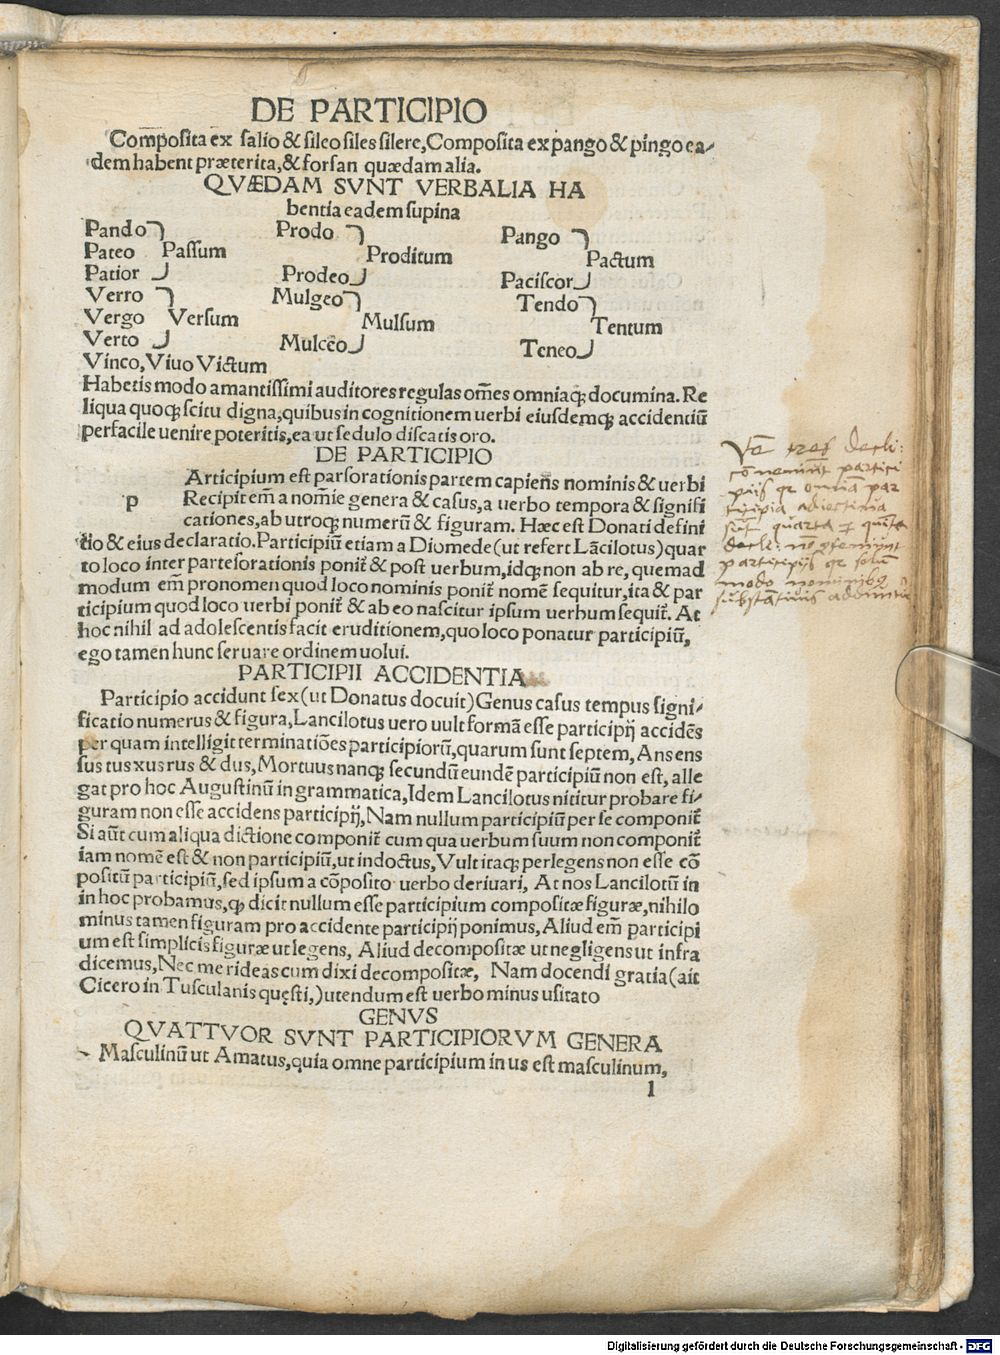 DE PARTICIPIO
Composita ex salio & sileo siles silere, Composita ex pango & pingo ea⸗
dem habent præterita, & forsan quædam alia.
QVÆDAM SVNT VERBALIA HA
bentia eadem supina
Pando Prodo Pango
Pateo Passum Proditum Pactum
Patior Prodeo Paciscor
Verro Mulgeo Tendo
Vergo Versum Mulsum Tentum
Verto Mulcēo Teneo
Vinco, Viuo Victum
Habetis modo amantissimi auditores regulas om̄es omniaqȝ documina. Re
liqua quoqȝ scitu digna, quibus in cognitionem uerbi eiusdemqȝ accidentiū
perfacile uenire poteritis, ea ut sedulo discatis oro.
DE PARTICIPIO
Articipium est pars orationis partem capiens nominis & uerbi
p Recipit em̄ a nom̄ie genera & casus, a uerbo tempora & signifi
cationes, ab utroqȝ numerū & figuram. Hæc est Donati defini
tio & eius declaratio. Participiū etiam a Diomede (ut refert Lācilotus) quar
to loco inter partes orationis ponit̄ & post uerbum, idqȝ non ab re, quemad
modum em̄ pronomen quod loco nominis ponit̄ nomē sequitur, ita & par
ticipium quod loco uerbi ponit̄ & ab eo nascitur ipsum uerbum sequit̄. At
hoc nihil ad adolescentis facit eruditionem, quo loco ponatur participiū,
ego tamen hunc seruare ordinem uolui.
PARTICIPII ACCIDENTIA
Participio accidunt sex (ut Donatus docuit) Genus casus tempus signi⸗
ficatio numerus & figura, Lancilotus uero uult formā esse participij accidēs
per quam intelligit terminatiōes participiorū, quarum sunt septem, Ans ens
sus tus xus rus & dus, Mortuus nanqȝ secundū eundē participiū non est, alle
gat pro hoc Augustinū in grammatica, Idem Lancilotus nititur probare fi⸗
guram non esse accidens participij, Nam nullum participiū per se componit̄
Si aūt cum aliqua dictione componit̄ cum qua uerbum suum non componit̄
iam nomē est & non participiū, ut indoctus, Vult itaqȝ perlegens non esse cō
positū participiū, sed ipsum a cōposito uerbo deriuari, At nos Lancilotū in
in hoc probamus, qȝ dicit nullum esse participium compositæ figuræ, nihilo
minus tamen figuram pro accidente participij ponimus, Aliud em̄ participi
um est simplicis figuræ ut legens, Aliud decompositæ ut negligens ut infra
dicemus, Nec me rideas cum dixi decompositæ, Nam docendi gratia (ait
Cicero in Tusculanis quęsti,) utendum est uerbo minus usitato
GENVS
QVATTVOR SVNT PARTICIPIORVM GENERA
Masculinū ut Amatus, quia omne participium in us est masculinum,
l
tres decli:
conueniūt partici
piis qr omnia par
ticipia adiectiua
sūt quarta quinta
decli: nō
participijs qr solum
modo nominibȝ
substantiuis
Digitalisierung gefördert durch die Deutsche Forschungsgemeinschaft - DFG